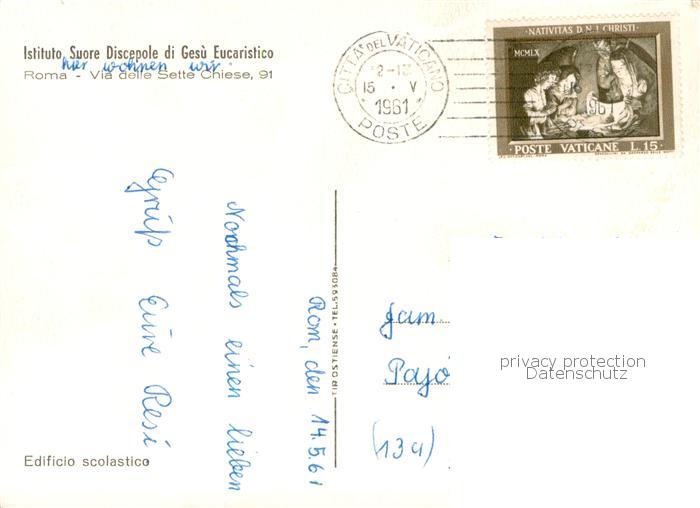 Istituto Suore Discepole di Gesù Eucaristico
hier wohnen wir.
Roma - Via delle Sette Chiese, 91
CITTA' DEL VATICANO
15 · V
1961
POSTE
NATIVITAS D.N.J. CHRISTI
MCMLX
POSTE VATICANE L.15
Rom, den 14.5.61
Nochmals einen lieben
Gruß Eure Resi
TIP. OSTIENSE - TEL. 593084
Fam.
(13a)
privacy protection
Datenschutz
Edificio scolastico